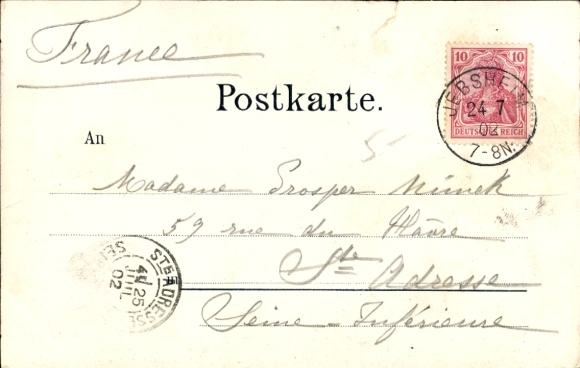 France
10 10
DEUTSCHES REICH
JEBSHEIM
24 7
02
7-8N.
Postkarte.
An
Madame Prosper
59 rue du Hâvre
Ste Adresse
Seine-Inférieure
STE ADRESSE
25
JUIL
02